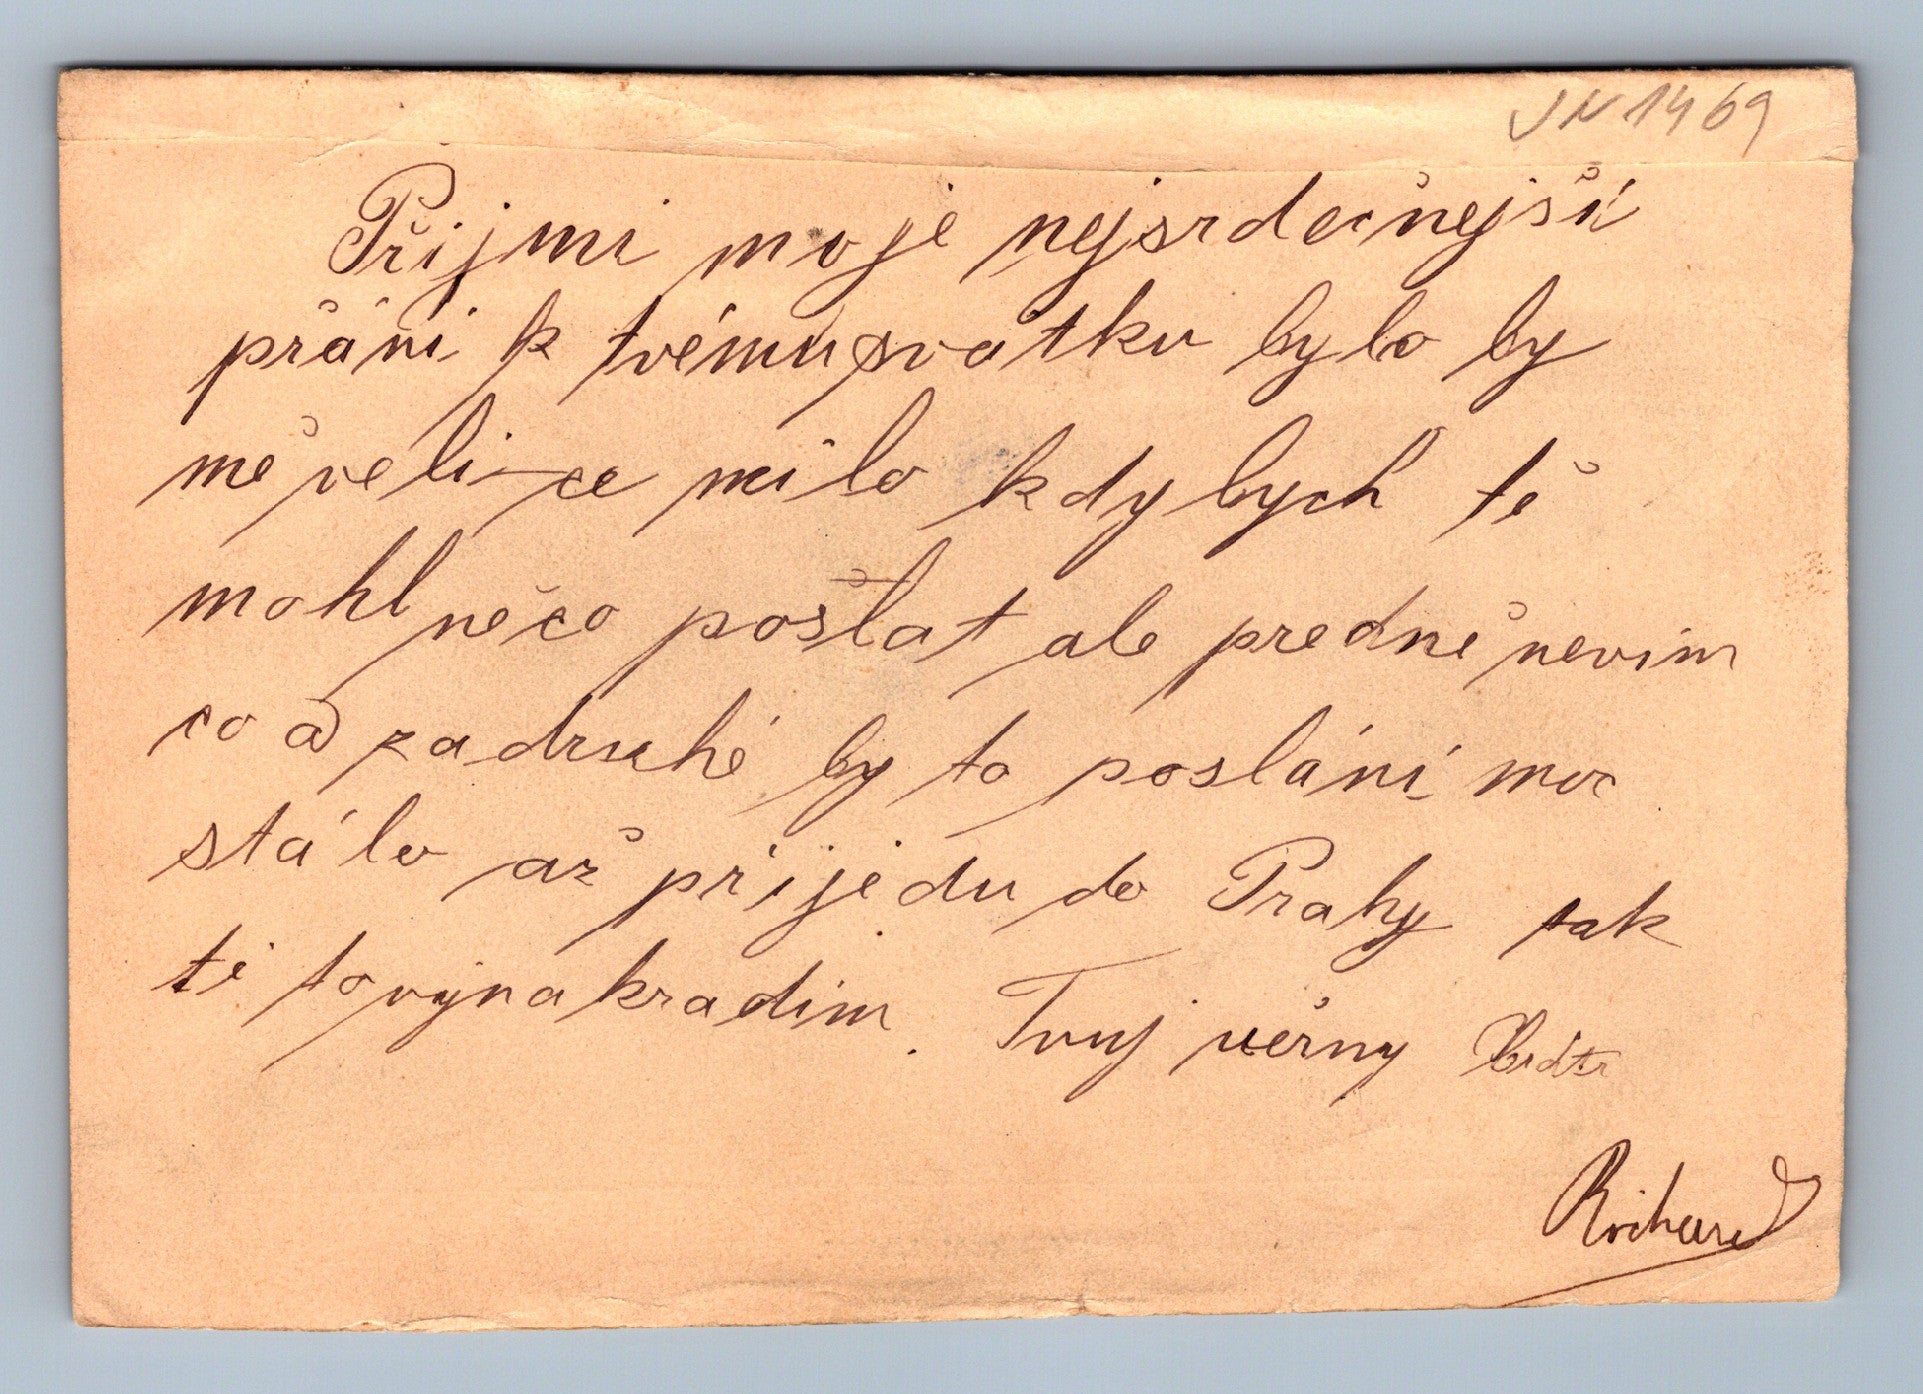 JN 1469
Přijmi moje nejsrdečnejší
přání k tvému svátku bylo by
mě velice milo kdybych tě
mohl něco poslat ale predně nevim
co a zadruhé by to poslání moc
stálo až přijedu do Prahy tak
ti to vynakradim. Tvuj věrny bratr
Richard